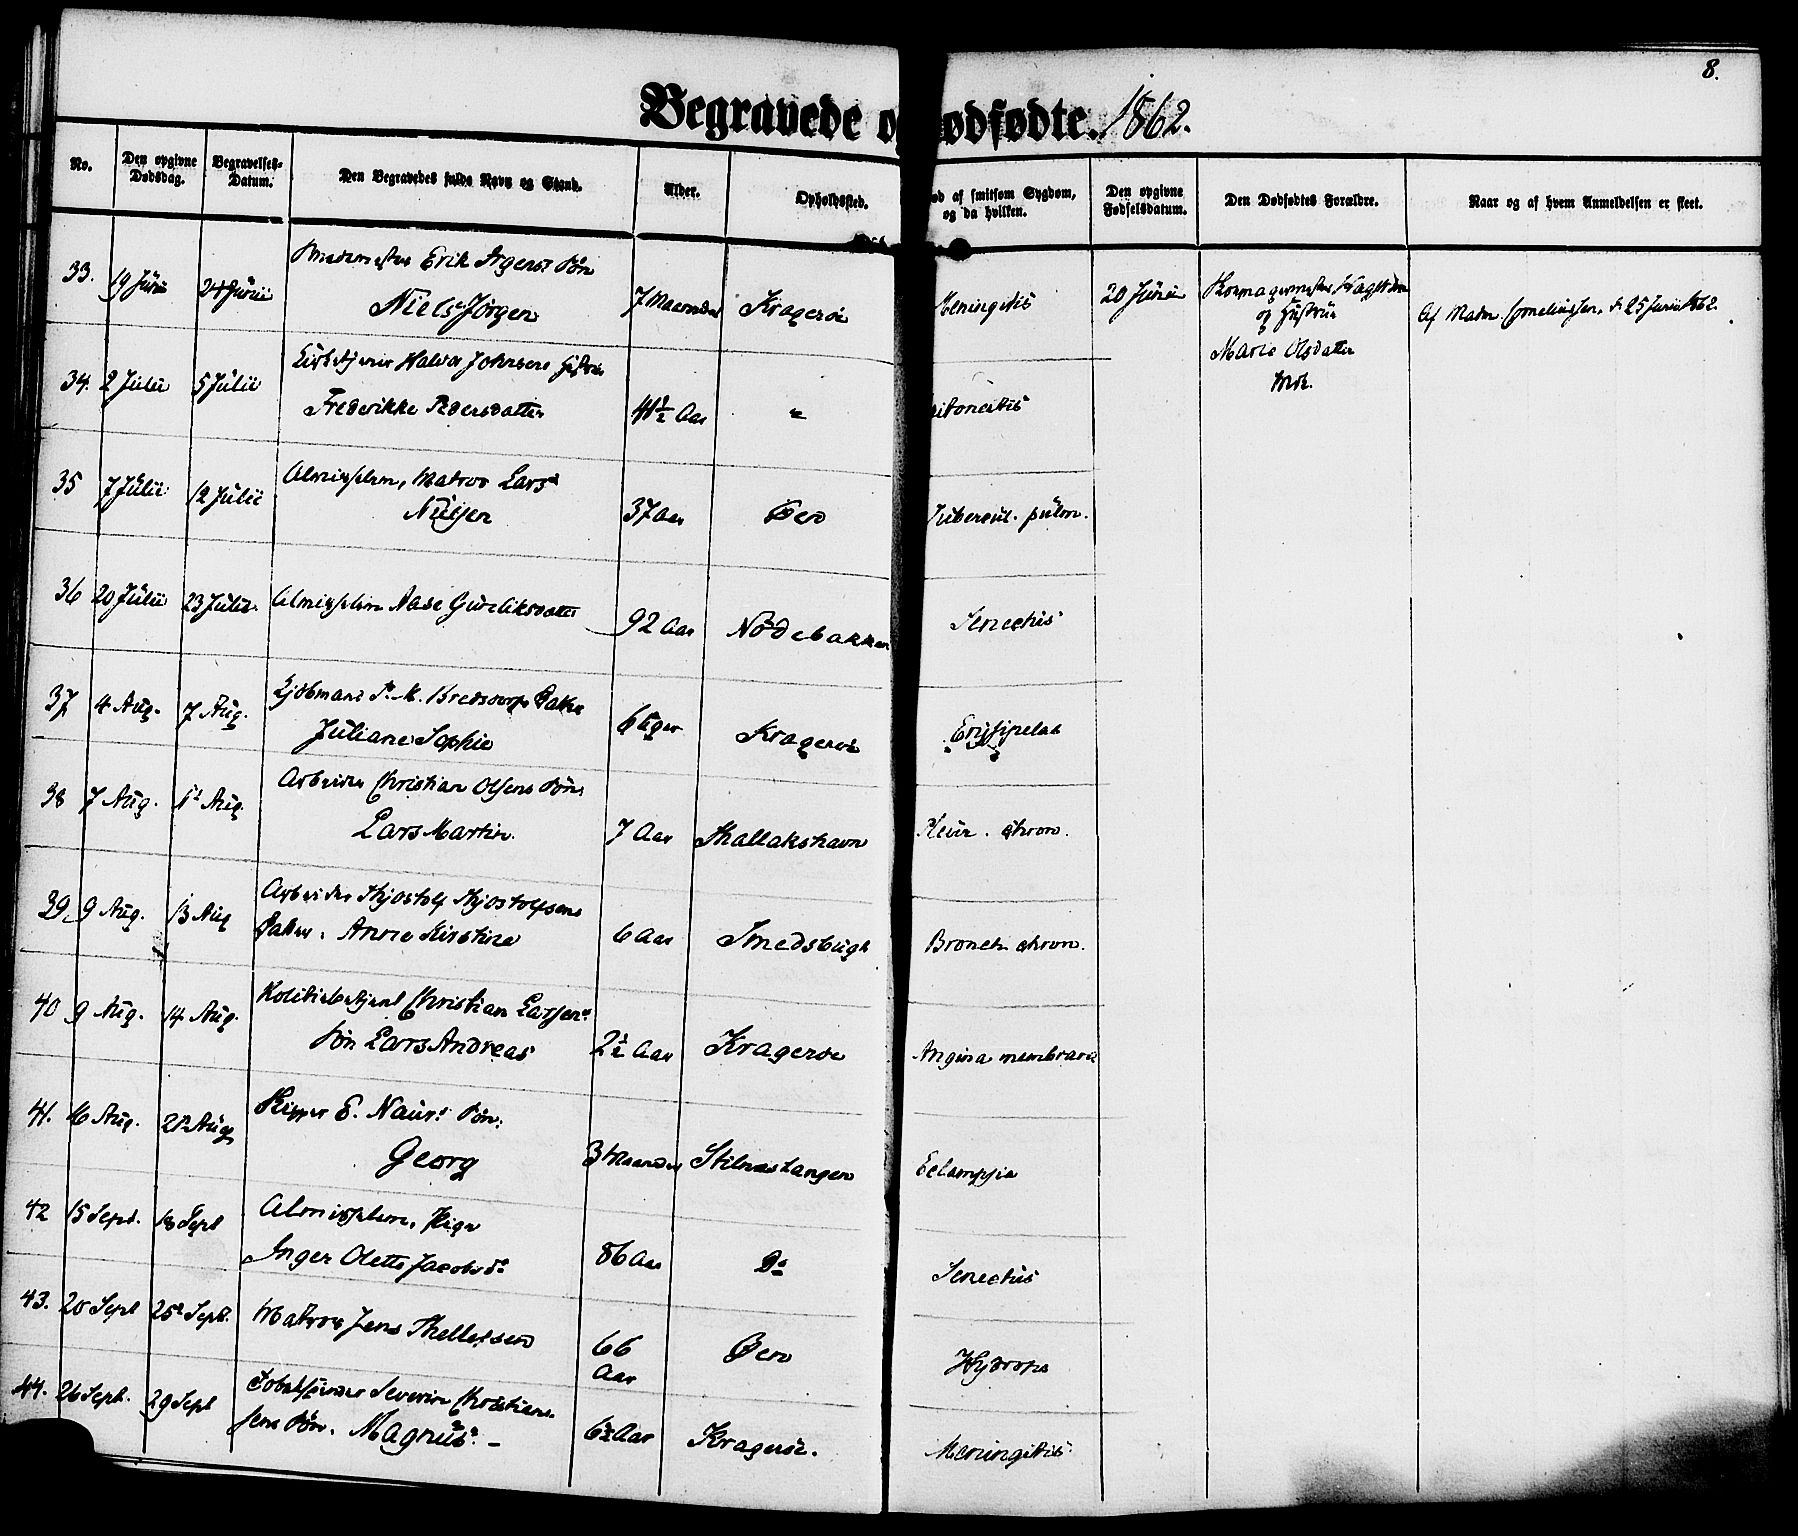 8.
Begravede o ødfødte. 1862.
No. Den opgivne Dødsdag. Begravelses-Datum. Den Begravedes fulde Navn og Stand. Alder. Opholdssted. ød af smitsom Sygdom, og da hvilken. Den opgivne Fødselsdatum. Den Dødfødtes Forældre. Naar og af hvem Anmeldelsen er skeet.
33. 19 Junii 24 Junii Erik Irgens's Søn
Niels Jørgen 7 Maaneder Kragerøe Meningitis 20 Junii og Hustrue Marie Olsdatter Af Madm. Corneliussen, d. 25 Junii 1862.
34. 2 Julii 5 Julii Halvor Johnsens Hustrue
Frederikke Pedersdatter 41½ Aar " itoneitis
35 7 Julii 12 Julii Almisselem, Matros Lars
Nilsen 37 Aar Øen Tubercul. pulm.
36 20 Julii 23 Julii. Almisselem Aase Gunleiksdatter 92 Aar Nødebakken Senectus
37 4 Aug. 7 Aug. Kjøbmand P. M. Bredsdorfs Datter
Juliane Sophie 6 Uger Kragerøe Erysipelas
38 7 Aug. Aug. Arbeider Christian Olsens Søn
Lars Martin. 7 Aar Thallakshavn Pleur. chron.
39 9 Aug. 13 Aug Arbeider Kjostolf Kjostolfsens
Datter, Anne Kirstine 6 Aar Smedsbugt Bronch chron.
40 9 Aug. 14 Aug. Politiebetjent Christian Larsens
Søn Lars Andreas 2½ Aar Kragerøe Angina membrana
41. 16 Aug. 21 Aug Skipper E. Naurs Søn.
Georg 3 Maaneder Stilnestangen Eclampsia
42 15 Sept. 18 Sept Almisselem, Pige
Inger Olette Jacobsd. 86 Aar Do Senectus
43. 20 Sept 25 Sept. Matros Jens Thellefsen 66 Aar Øen Hydrops
44. 26 Sept. 29 Sept Severin Christian-
sens Søn. Magnus. – 6½ Aar Kragerøe. Meningitis